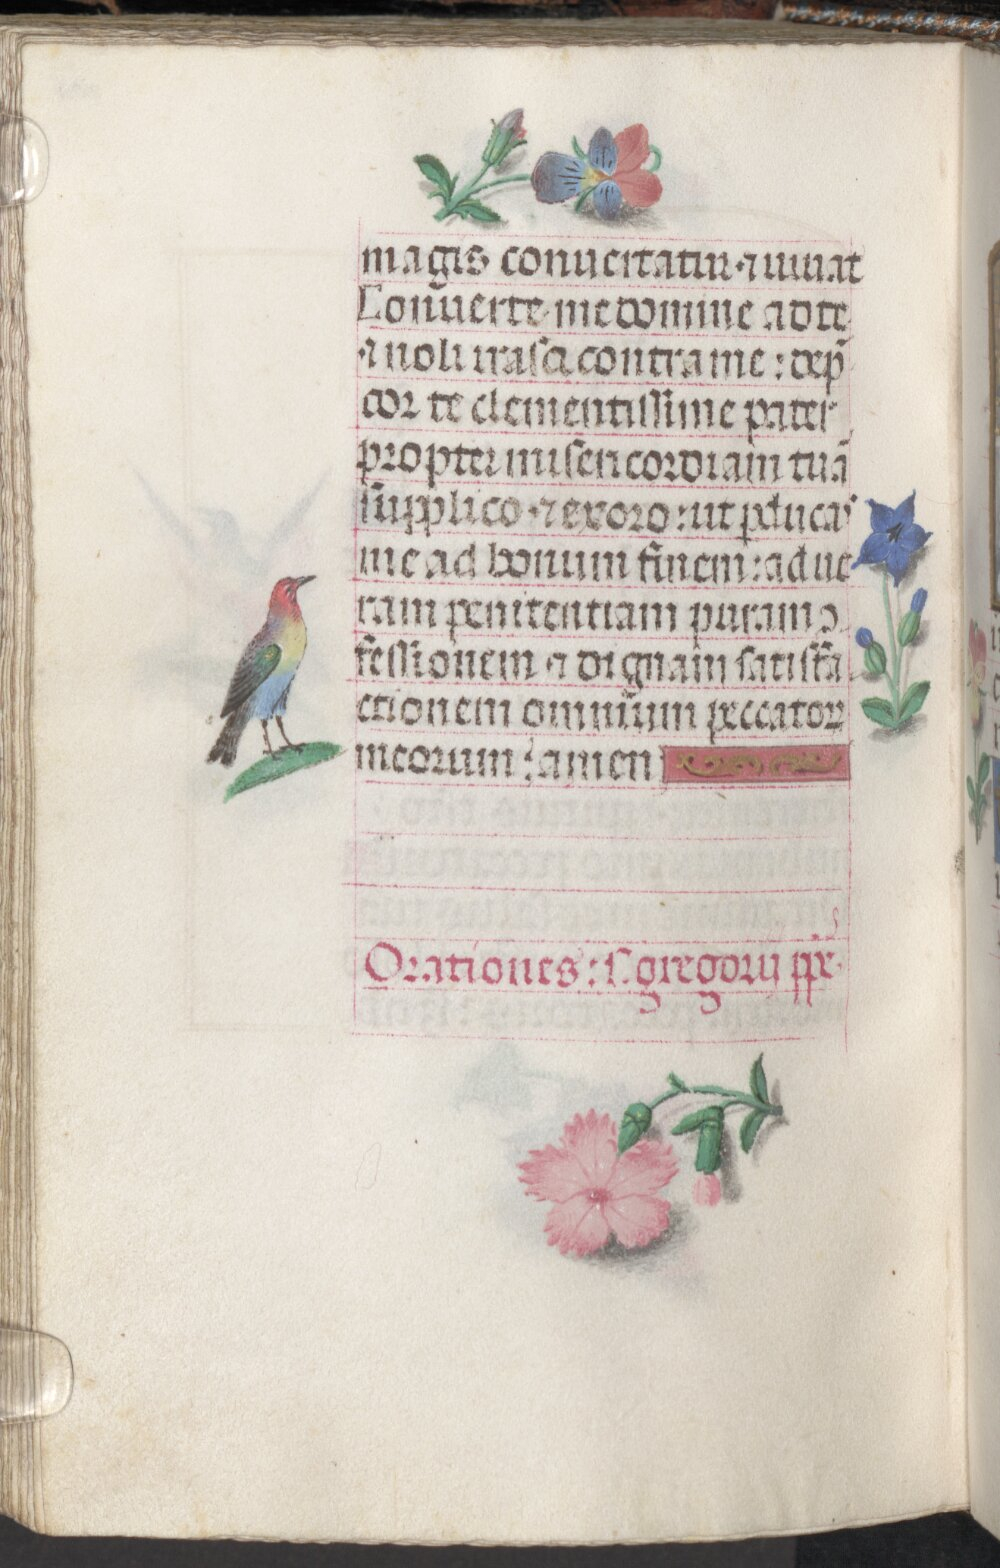 magis conuertatur ⁊ uiuat
Conuerte me domine ad te
⁊ noli irasci contra me : dep̄
cor te clementissime pater
propter misericordiam tuā
supplico ⁊ exoro : ut ꝑducas
me ad bonum finem : ad ue
ram penitentiam puram ꝯ
fessionem ⁊ dignam satisfa
ctionem omnium peccatoꝝ
meorum : amen
Orationes : S. gregorij pp.